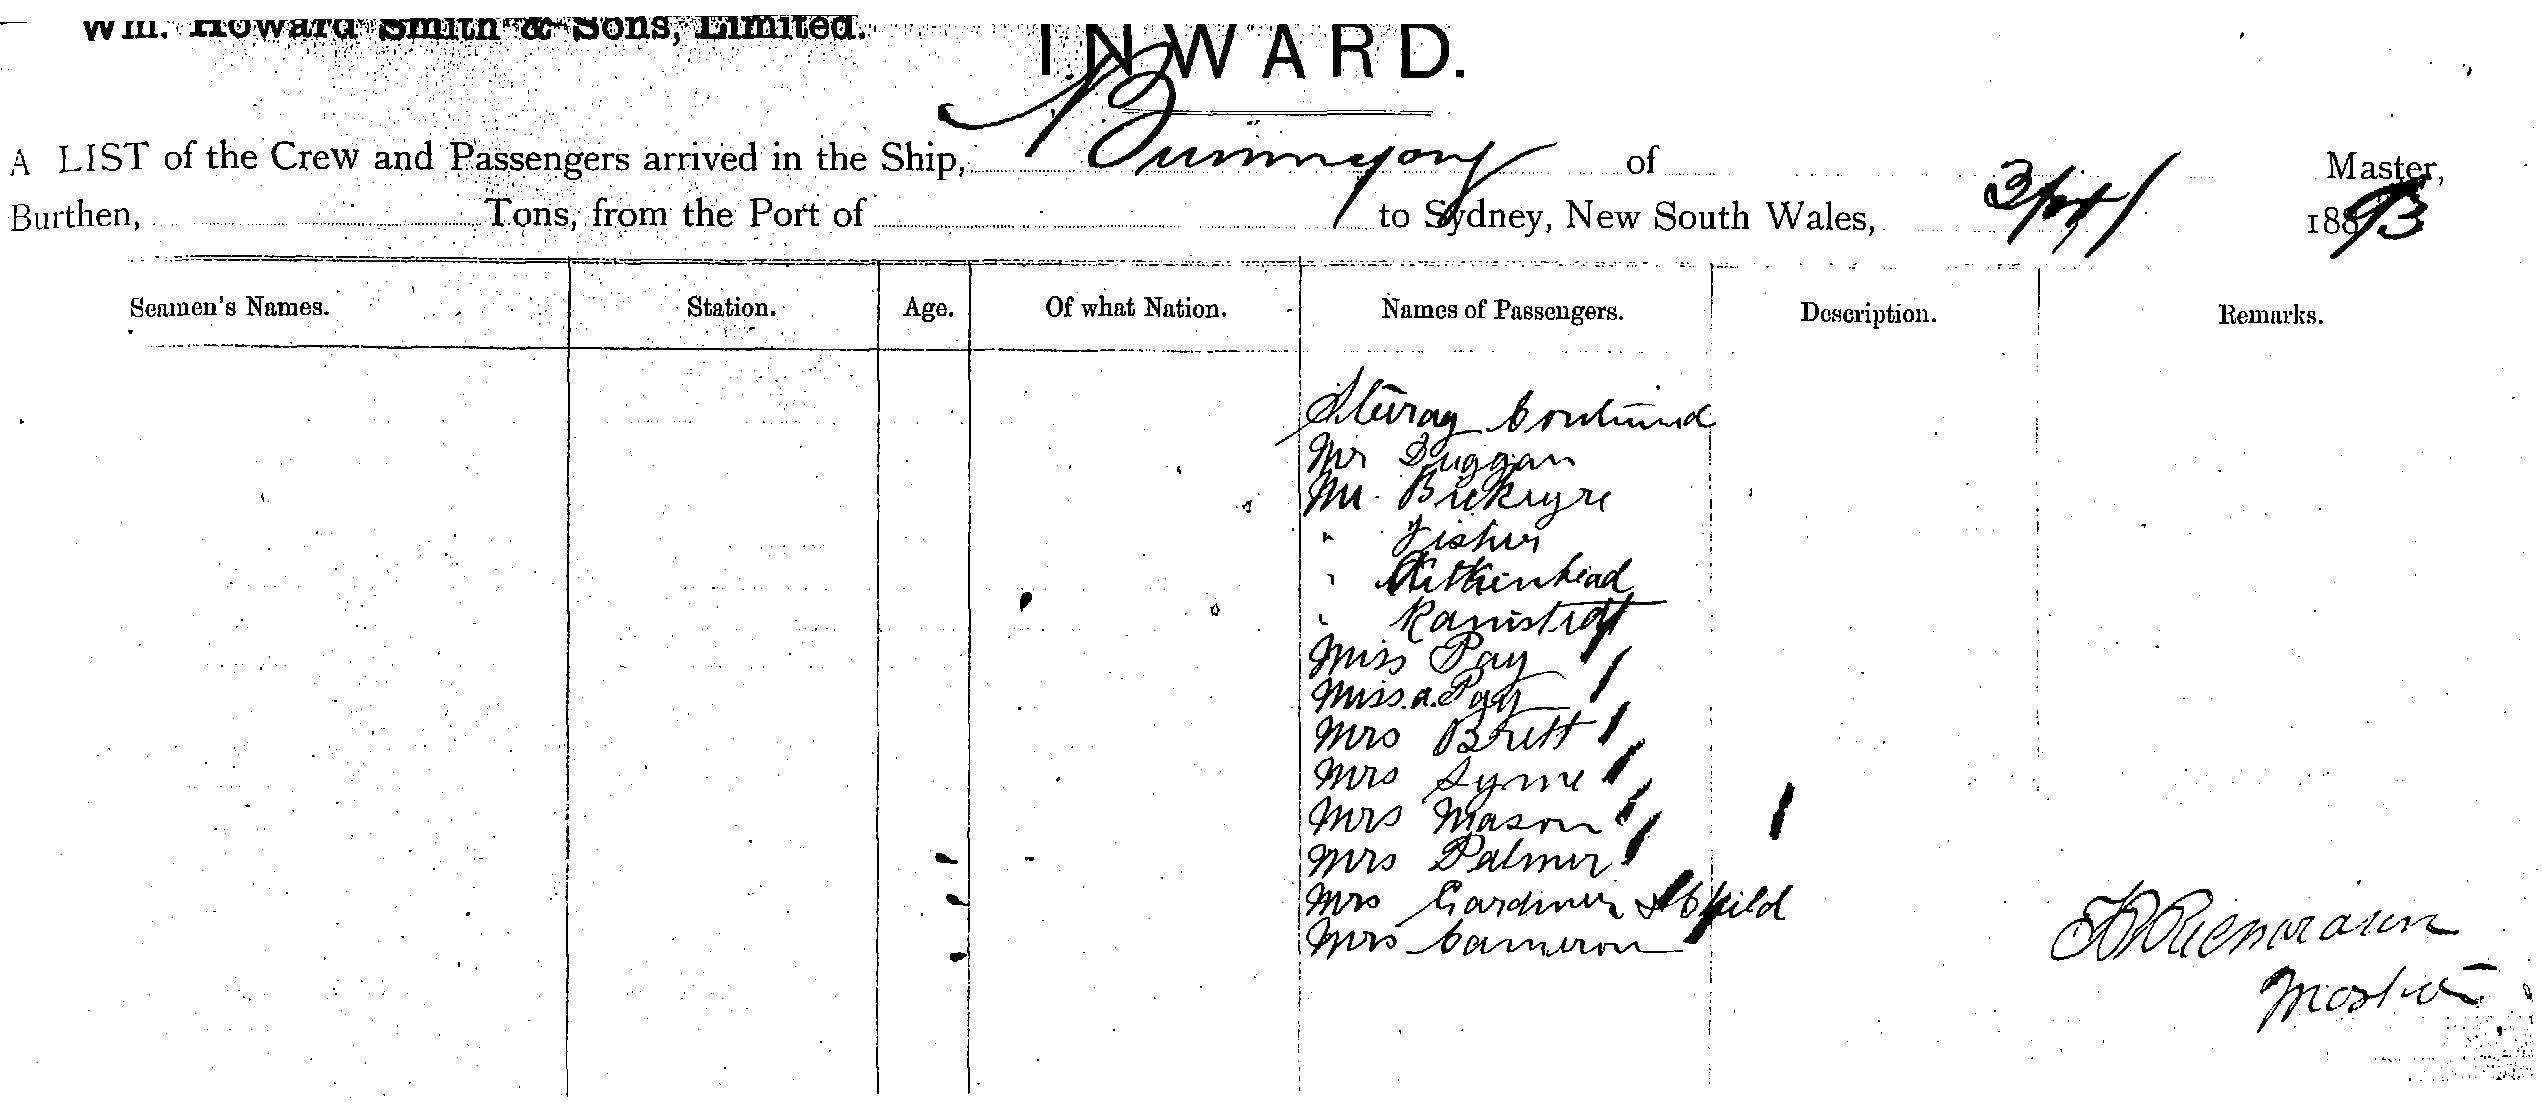 Wm. Howard Smith & Sons, Limited.
INWARD.
A LIST of the Crew and Passengers arrived in the Ship, Buninyong of Master,
Burthen, Tons, from the Port of to Sydney, New South Wales, 1893
Seamen's Names. Station. Age. Of what Nation. Names of Passengers. Description. Remarks.
Steerag Continued
Mr Duggan
Mr.
" Fisher
" Aitkenhead
"
Miss Pay
Miss. A. Pay
Mrs Brett
Mrs Syme
Mrs Mason
Mrs Palmer
Mrs Gardiner & Child
Mrs Cameron
Master